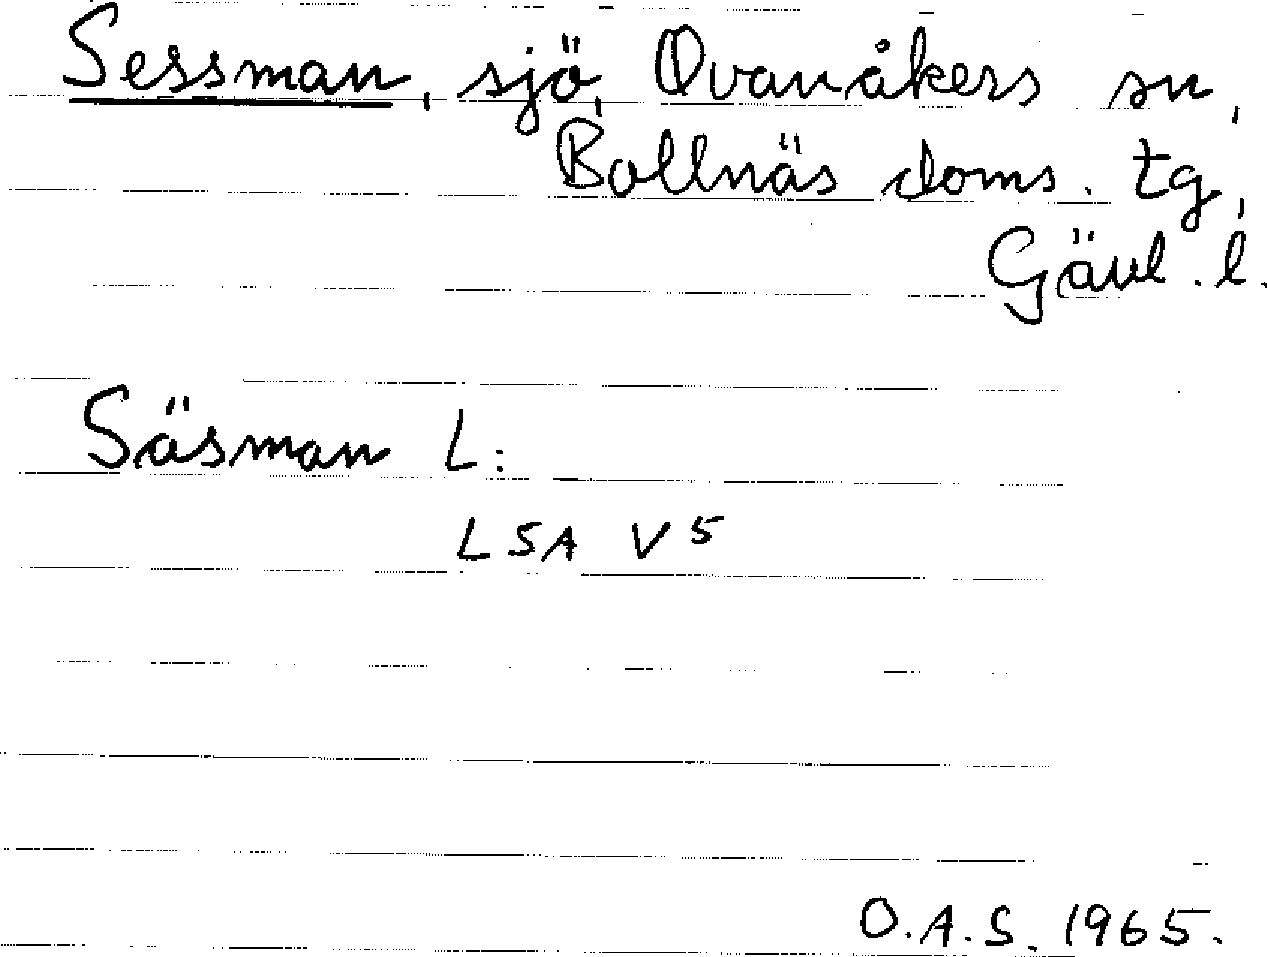 Sessman, sjö, Ovanåkers sn,
Bollnäs doms. tg,
Gävl. l.
Säsman L:
LSA V5
O.A.S. 1965.